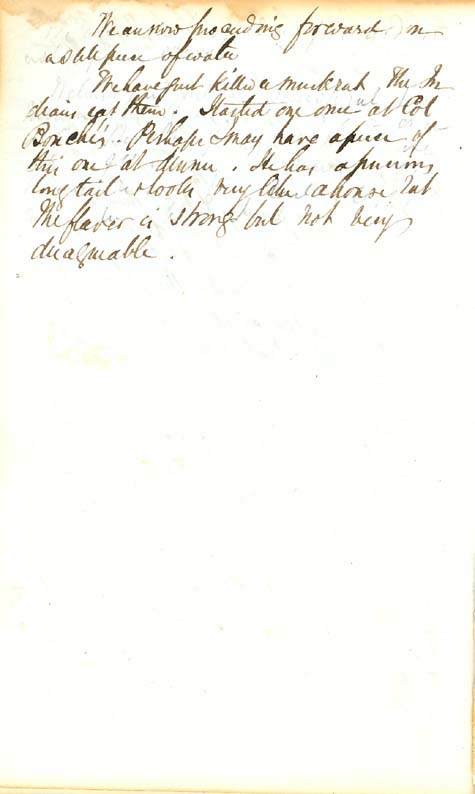 We are now proceeding forward on
a still piece of water
We have just killed a muskrat, The In
dians eat them. I tasted one once at Col
Bouchés. Perhaps I may have a piece of
this one at dinner. He has a
long tail & looks very like a house rat
The flavor is strong but not very
disagreable.